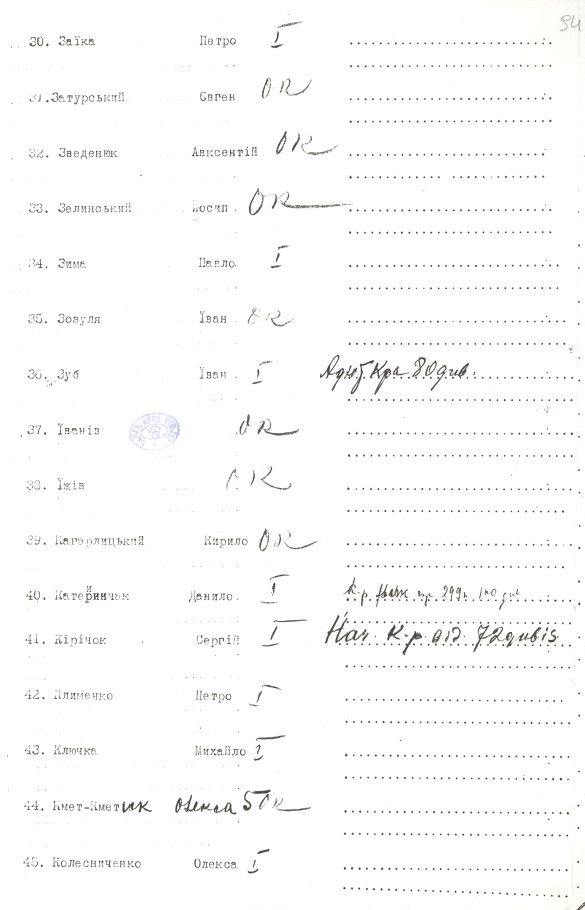 94
30. Заїка Петро I
31. Затурський Євген ОК
32. Зведенюк Авксентій ОК
33. Зелинський Йосип. ОК
34. Зима Павло I
35. Зозуля Іван. ОК
36. Зуб Іван. I 80 див.
37. Їванів ОК
38. Їжів ОК
39. Кагарлицький Кирило ОК
40. Катеринчак Данило. I
41. Кірічок Сергій I Нач. 72 дивіз
42. Клименко Петро I
43. Ключка Михайло I
44. Кмет-Кметик Олекса ОК
45. Колесниченко Олекса I